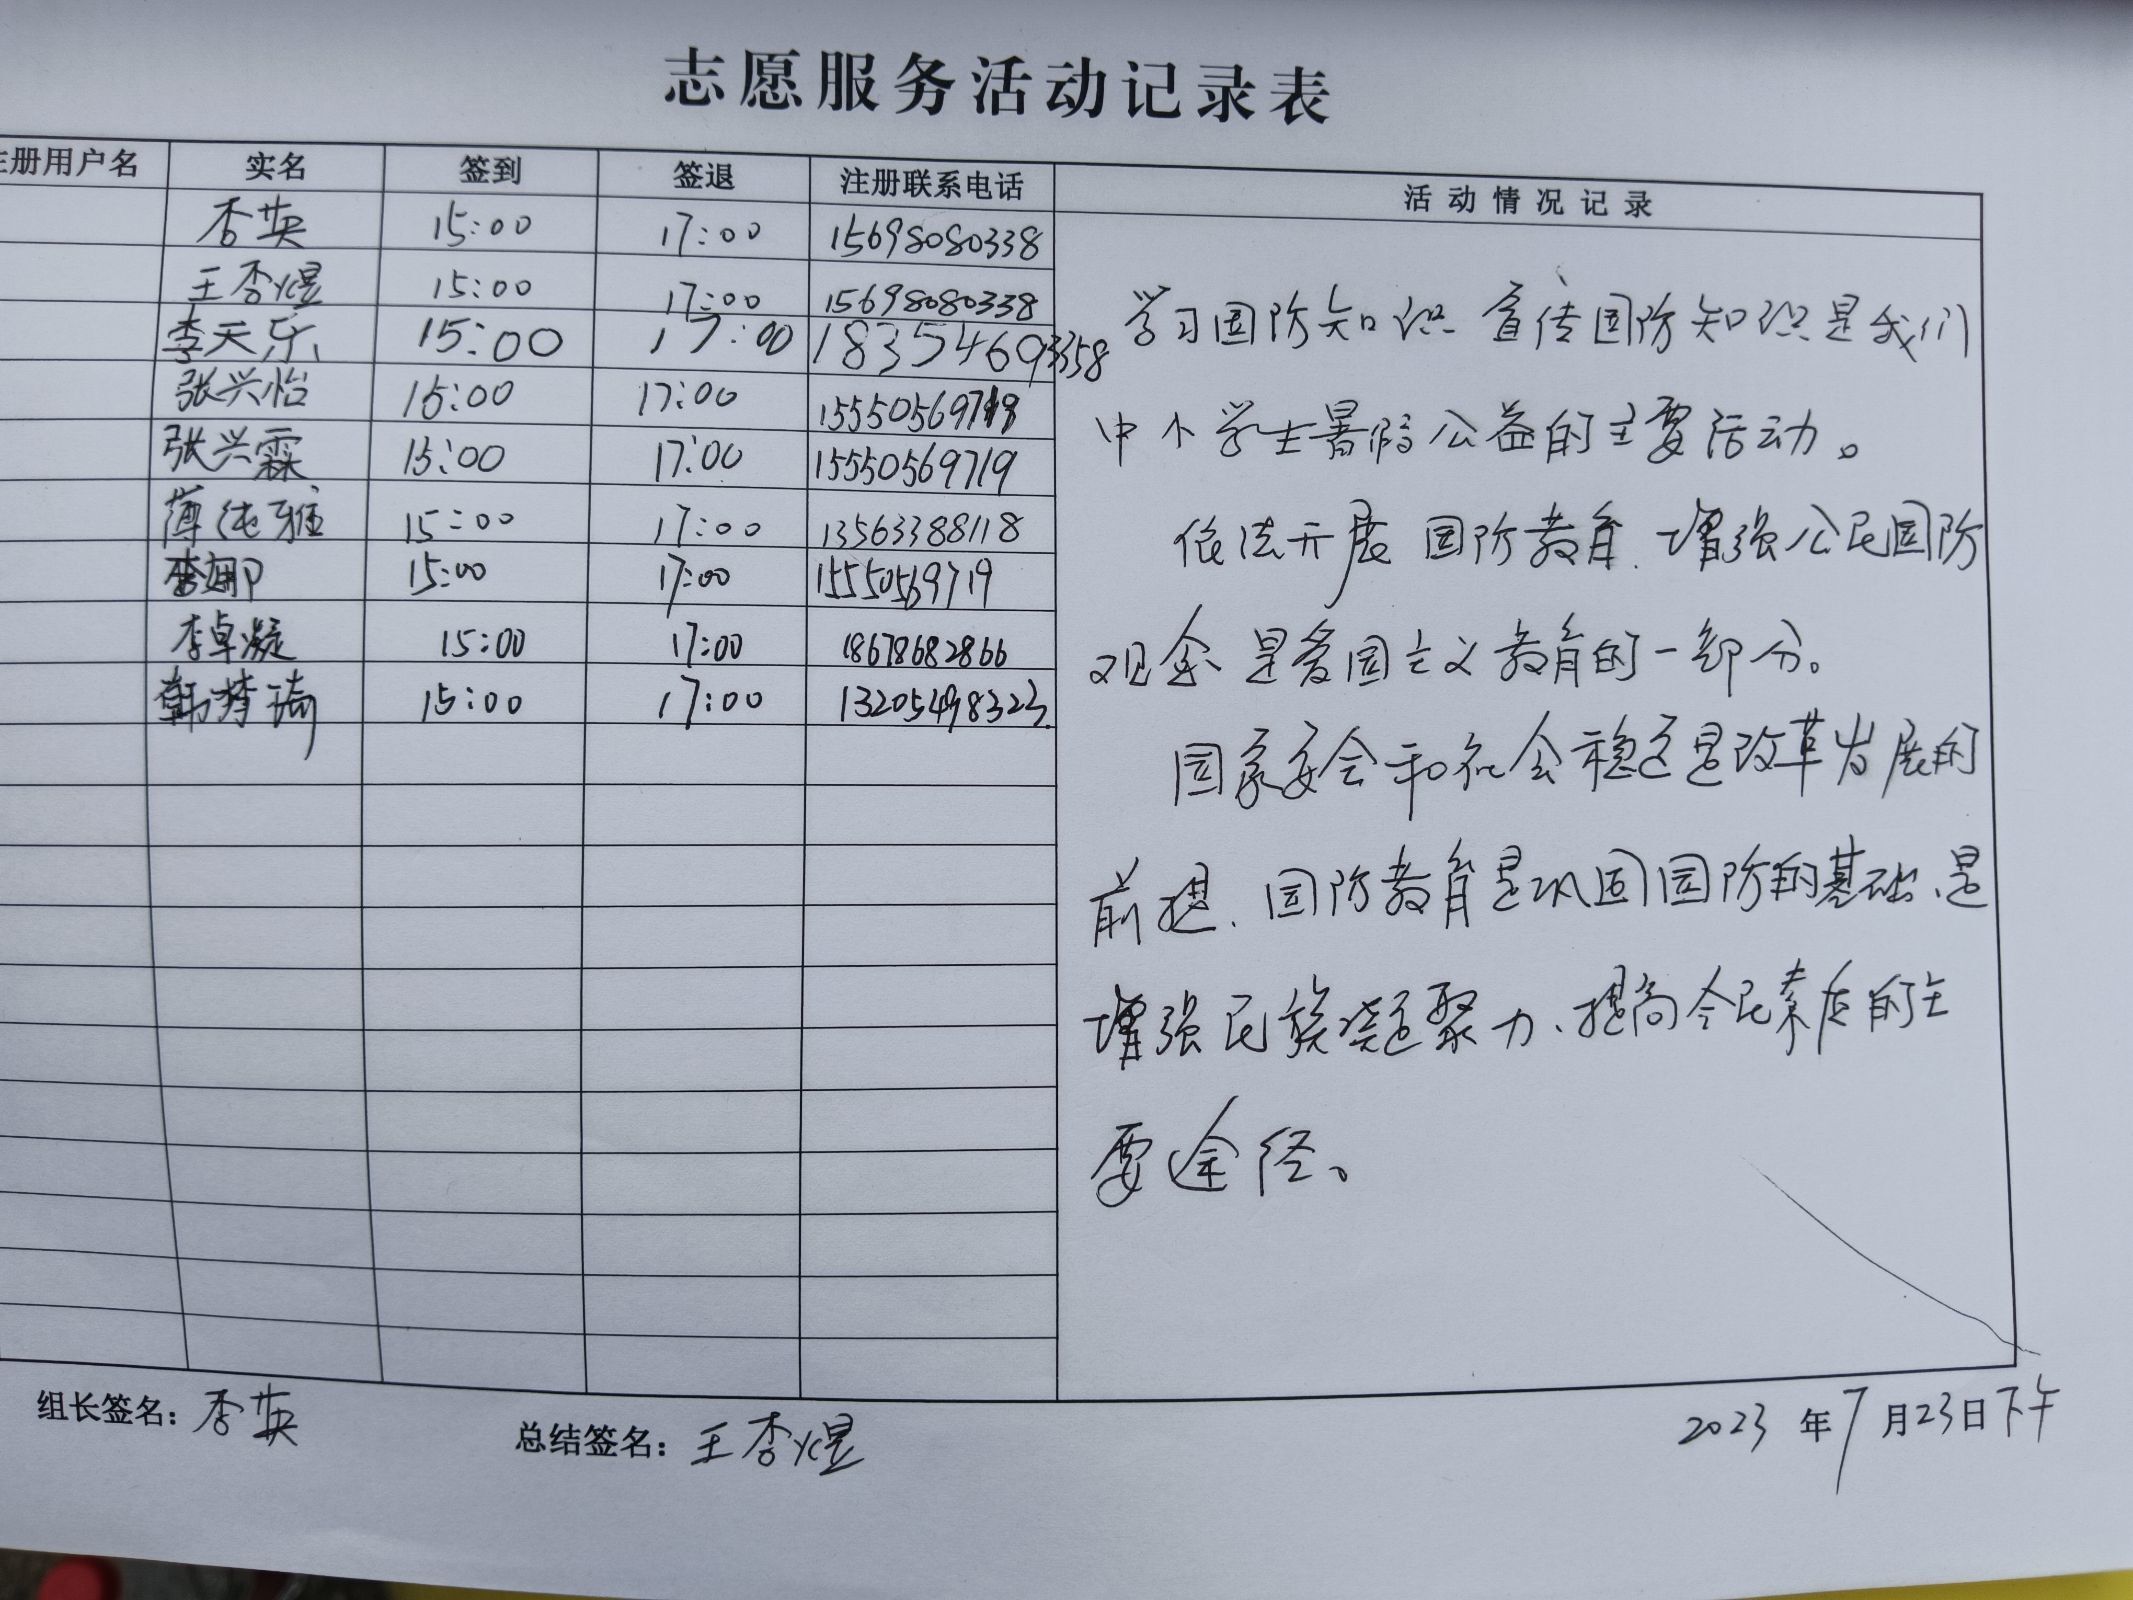 志愿服务活动记录表
注册用户名 实名 签到 签退 注册联系电话 活动情况记录
李英 15:00 17:00 15698080338
王李煜 15:00 17:00 15698080338
李天乐 15:00 17:00 18354693358
张兴怡 15:00 17:00 15550569719
张兴霖 15:00 17:00 15550569719
薄纯雅 15:00 17:00 13563388118
李娜 15:00 17:00 15550569719
李卓凝 15:00 17:00 18678682866
韩梦琦 15:00 17:00 13205498323
学习国防知识 宣传国防知识是我们
中小学生暑假公益的主要活动。
依法开展 国防教育、增强公民国防
观念 是爱国主义教育的一部分。
国家安全和社会稳定是改革发展的
前提、国防教育是巩固国防的基础、是
增强民族凝聚力、提高全民素质的主
要途径。
组长签名：李英 总结签名：王李煜 2023年7月23日下午